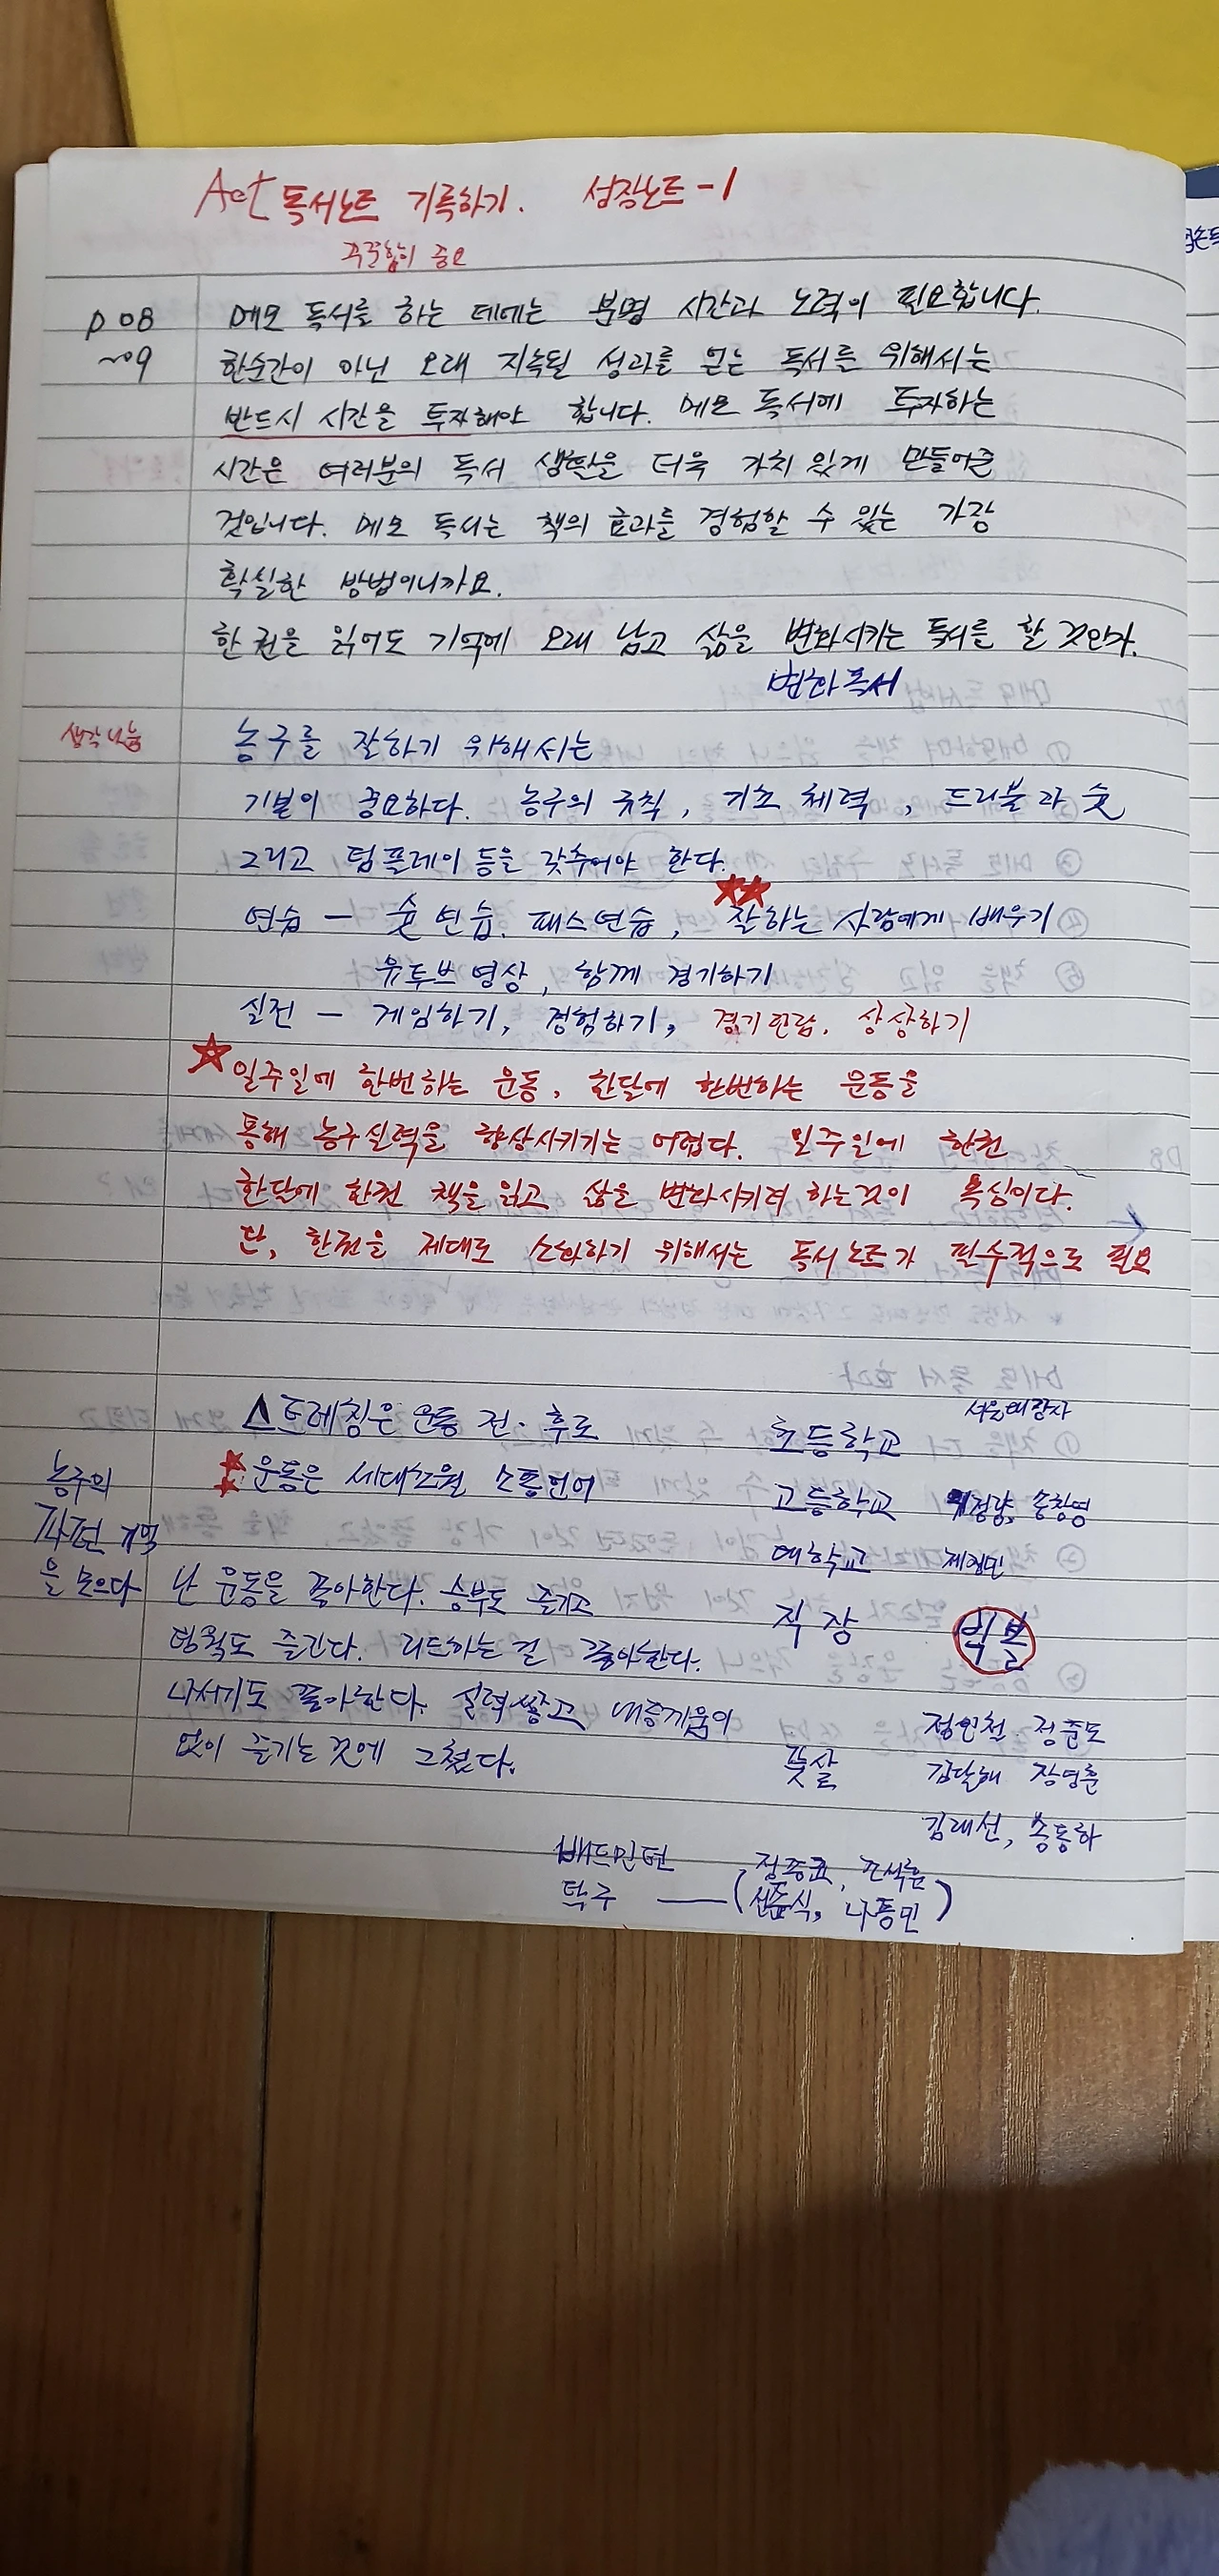 Act 독서노트 기록하기. 성장노트-1
꾸준함이 중요
p 08 메모 독서를 하는 데에는 분명 시간과 노력이 필요합니다.
~09 한순간이 아닌 오래 지속될 성과를 얻는 독서를 위해서는
반드시 시간을 투자해야 합니다. 메모 독서에 투자하는
시간은 여러분의 독서 생활을 더욱 가치 있게 만들어줄
것입니다. 메모 독서는 책의 효과를 경험할 수 있는 가장
확실한 방법이니까요.
한 권을 읽어도 기억에 오래 남고 삶을 변화시키는 독서를 할 것인가.
변화 독서
생각나눔 농구를 잘하기 위해서는
기본이 중요하다. 농구의 규칙, 기초 체력, 드리블과 슛
그리고 팀플레이 등을 갖추어야 한다.
연습 - 슛 연습, 패스연습, 잘하는 사람에게 배우기
유투브 영상, 함께 경기하기
실전 - 게임하기, 경험하기, 경기관람, 상상하기
☆일주일에 한번하는 운동, 한달에 한번하는 운동을
통해 농구실력을 향상시키기는 어렵다. 일주일에 한권
한달에 한권 책을 읽고 삶을 변화시키려 하는것이 욕심이다.
단, 한권을 제대로 소화하기 위해서는 독서노트가 필수적으로 필요
스트레칭은 운동 전·후로
운동은 세대초월 소통언어
농구의
파편 기억
을 모으다
난 운동을 좋아한다. 승부도 즐기고
땀흘도 즐긴다. 리드하는 걸 좋아한다.
나서기도 좋아한다. 실력쌓고 내
없이 즐기는 것에 그쳤다.
초등학교
고등학교 송창영
대학교
직장 빅볼
정인철 정준도
풋살 김달해 장영훈
김래선, 송동하
배드민턴
탁구 — (신준식, 나동민)